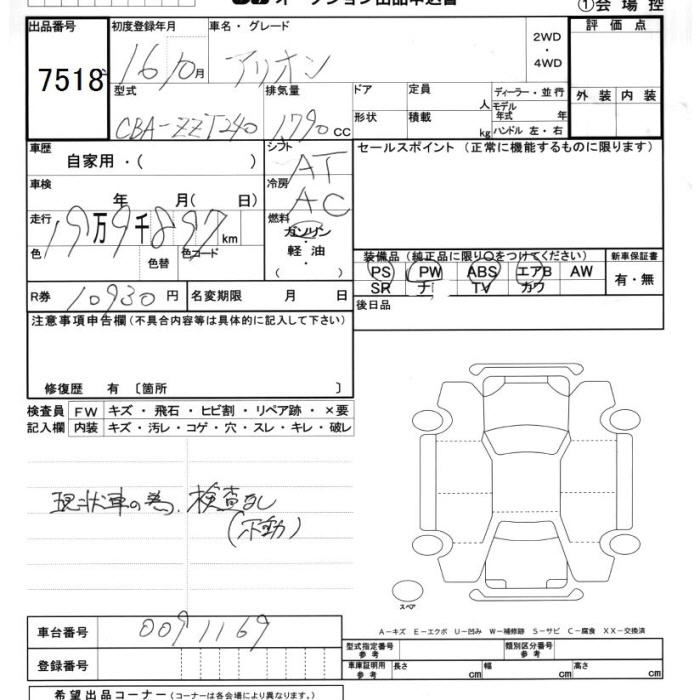 オークション出品申込書
①会場控
出品番号 7518
初度登録年月 16 10月
車名・グレード アリオン
2WD・4WD
評価点
外装 内装
型式 CBA-ZZT240
排気量 1790 CC
ドア 定員 人
形状 積載 kg
ディーラー・並行
モデル年式 年
ハンドル 左・右
車歴 自家用・( )
シフト AT
セールスポイント(正常に機能するものに限ります)
車検 年 月( 日)
冷房 AC
走行 19万9千897km
燃料 ガソリン・軽油・( )
色 色替 色コード
装備品(純正品に限り○をつけてください)
新車保証書
PS PW ABS エアB AW
SR ナビ TV カワ
有・無
R券 10930円
名変期限 月 日
後日品
注意事項申告欄(不具合内容等は具体的に記入して下さい)
修復歴 有 〔箇所 〕
検査員 FW キズ・飛石・ヒビ割・リペア跡・×要
記入欄 内装 キズ・汚レ・コゲ・穴・スレ・キレ・破レ
現状車の為、検査なし
(不動)
スペア
A-キズ E-エクボ U-凹み W-補修跡 S-サビ C-腐食 XX-交換済
車台番号 0091169
登録番号
型式指定番号 参考
類別区分番号 参考
車庫証明用 参考 長さ cm 幅 cm 高さ cm
希望出品コーナー(コーナーは各会場により異なります。)